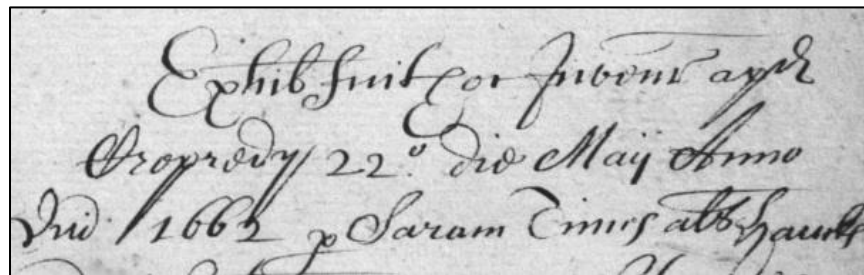 Exhib fuit hoc Inventm apud
Cropredy 22o. die Maij Anno
Dni 1662 p Saram Times als Hawks